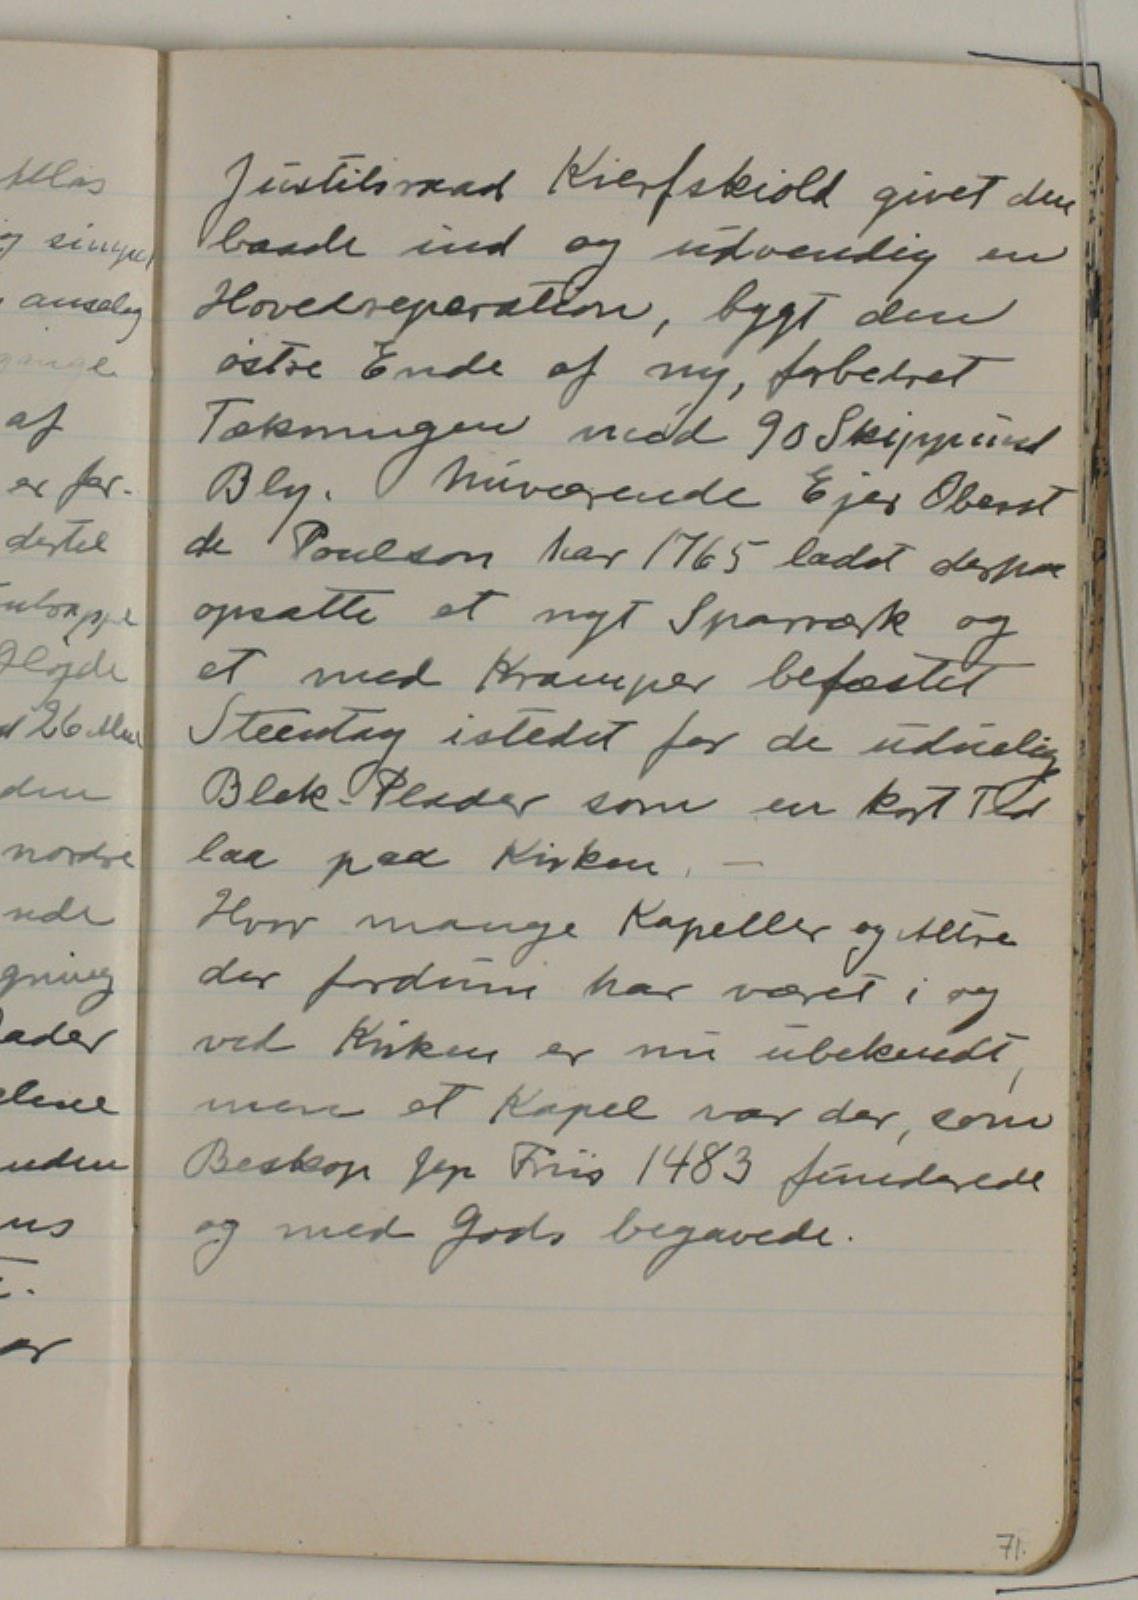 Atlas
og simpel
anselig
gange
af
er for-
dertil
Højde
26 Alen
den
nordre
nde
gning
ader
elene
uden
ns
or
Justitsraad Kierfskiold givet den
baade ind og udvendig en
Hovedreparation, bygt den
østre Ende af ny, forbedret
Tækningen med 90 Skippund
Bly. Nuværende Ejer Oberst
de Poulson har 1765 ladet derpaa
opsatte et nyt Sparværk og
et med Kramper befæstet
Steentag istedet for de uduelig
Blek-Plader som en kort Tid
laa paa Kirken. —
Hvor mange Kapeller og Altre
der fordum har været i og
ved Kirken er nu ubekendt,
men et Kapel var der, som
Beskop Jep Friis 1483 funderede
og med Gods begavede.
71.